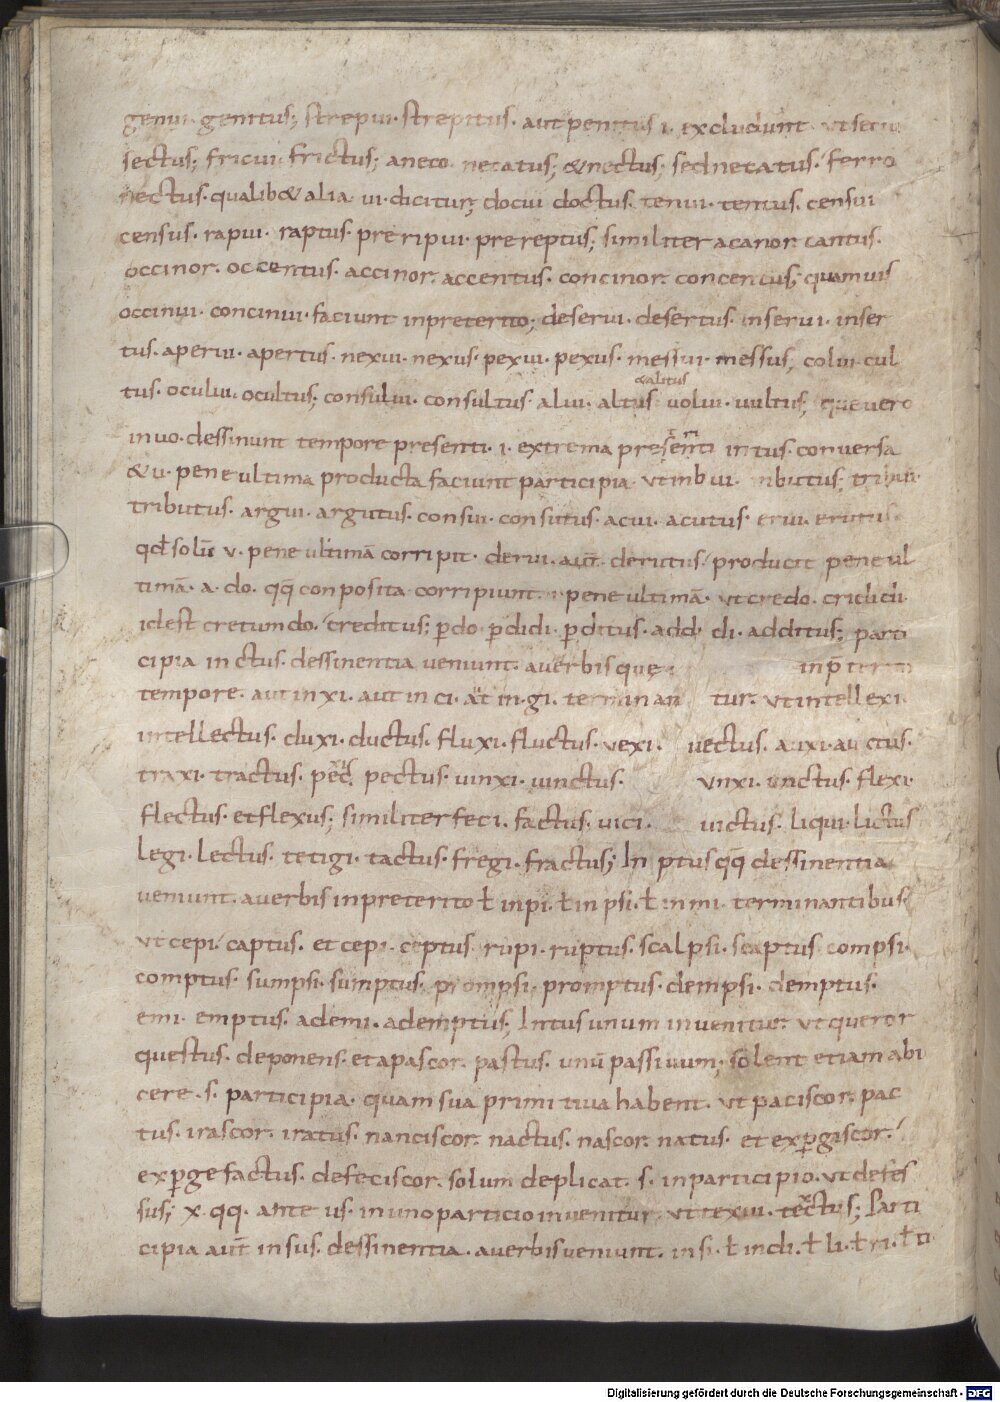 genui. genitus; strepui. strepitus. aut penitus .i. excludunt. ut secui
sectus; fricui. frictus; aneco. necatus; & nectus; sed necatus. ferro
nectus. qualib& alia ui. dicitur; docui doctus. tenui. tentus. censui
census. rapui. raptus. preripui. prereptus; similiter a canor. cantus.
occinor. occentus. accinor. accentus. concinor. concentus; quamuis
occinui. concinui. faciunt inpreterito; deserui. desertus. inserui. inser
tus. aperui. apertus. nexui. nexus. pexui. pexus. messui. messus; colui. cul
&alitus
tus. ocului. ocultus; consului. consultus. alui. altus. uolui. uultus; que uero
inuo. dessinunt tempore presenti. i. extrema presenti in tus. conuersa
& u. peneultima producta faciunt participia. ut inbui. inbutus; tribui.
tributus. argui. argutus. consui. consutus. acui. acutus. erui. erutus.
qd̄ solū v. peneultimā corripit. derui. aut̄ derutus. producit peneul
timā. a. do. qq̄ conposita corripiunt. i. peneultimā. ut credo. credidi.
idest cretum do. creditus; p̄do. p̄didi. p̄ditus. addidi. additus; parti
cipia in ctus. dessinentia ueniunt. auerbis que in p̄terito
tempore. aut in xi. aut in ci. aūt in gi. terminan tur. ut intellexi.
intellectus. duxi. ductus. fluxi. fluctus. vexi. uectus. auxi. auctus.
traxi. tractus. pectus. uinxi. uinctus. unxi. unctus. flexi.
flectus. et flexus; similiter feci. factus. uici. uictus. liqui. lictus
legi. lectus. tetigi. tactus. fregi. fractus; In ptus qq̄ dessinentia
ueniunt. auerbis inpreterito ł in pi. ł in psi. ł in mi. terminantibus.
ut cepi. captus. et cepi. ceptus. rupi. ruptus. scalpsi. scaptus. compsi.
comptus. sumpsi. sumptus. prompsi. promptus. dempsi. demptus.
emi. emptus. ademi. ademptus; In tus unum inuenitur. ut queror
questus. deponens. et a pascor. pastus. unū passiuum; solent etiam abi
cere .s. participia. quam sua primitiua habent. ut paciscor. pac
tus. irascor. iratus. nanciscor. nactus. nascor. natus. et exp̄giscor.
exp̄gefactus. defeciscor. solum deplicat .s. inparticipio. ut defes
sus; x. qq. ante us. in uno particio inuenitur. ut texui. textus; Parti
cipia aut̄ in sus. dessinentia. auerbis ueniunt. in si. ł in di. ł li. ł ri. ł ti
Digitalisierung gefördert durch die Deutsche Forschungsgemeinschaft - DFG